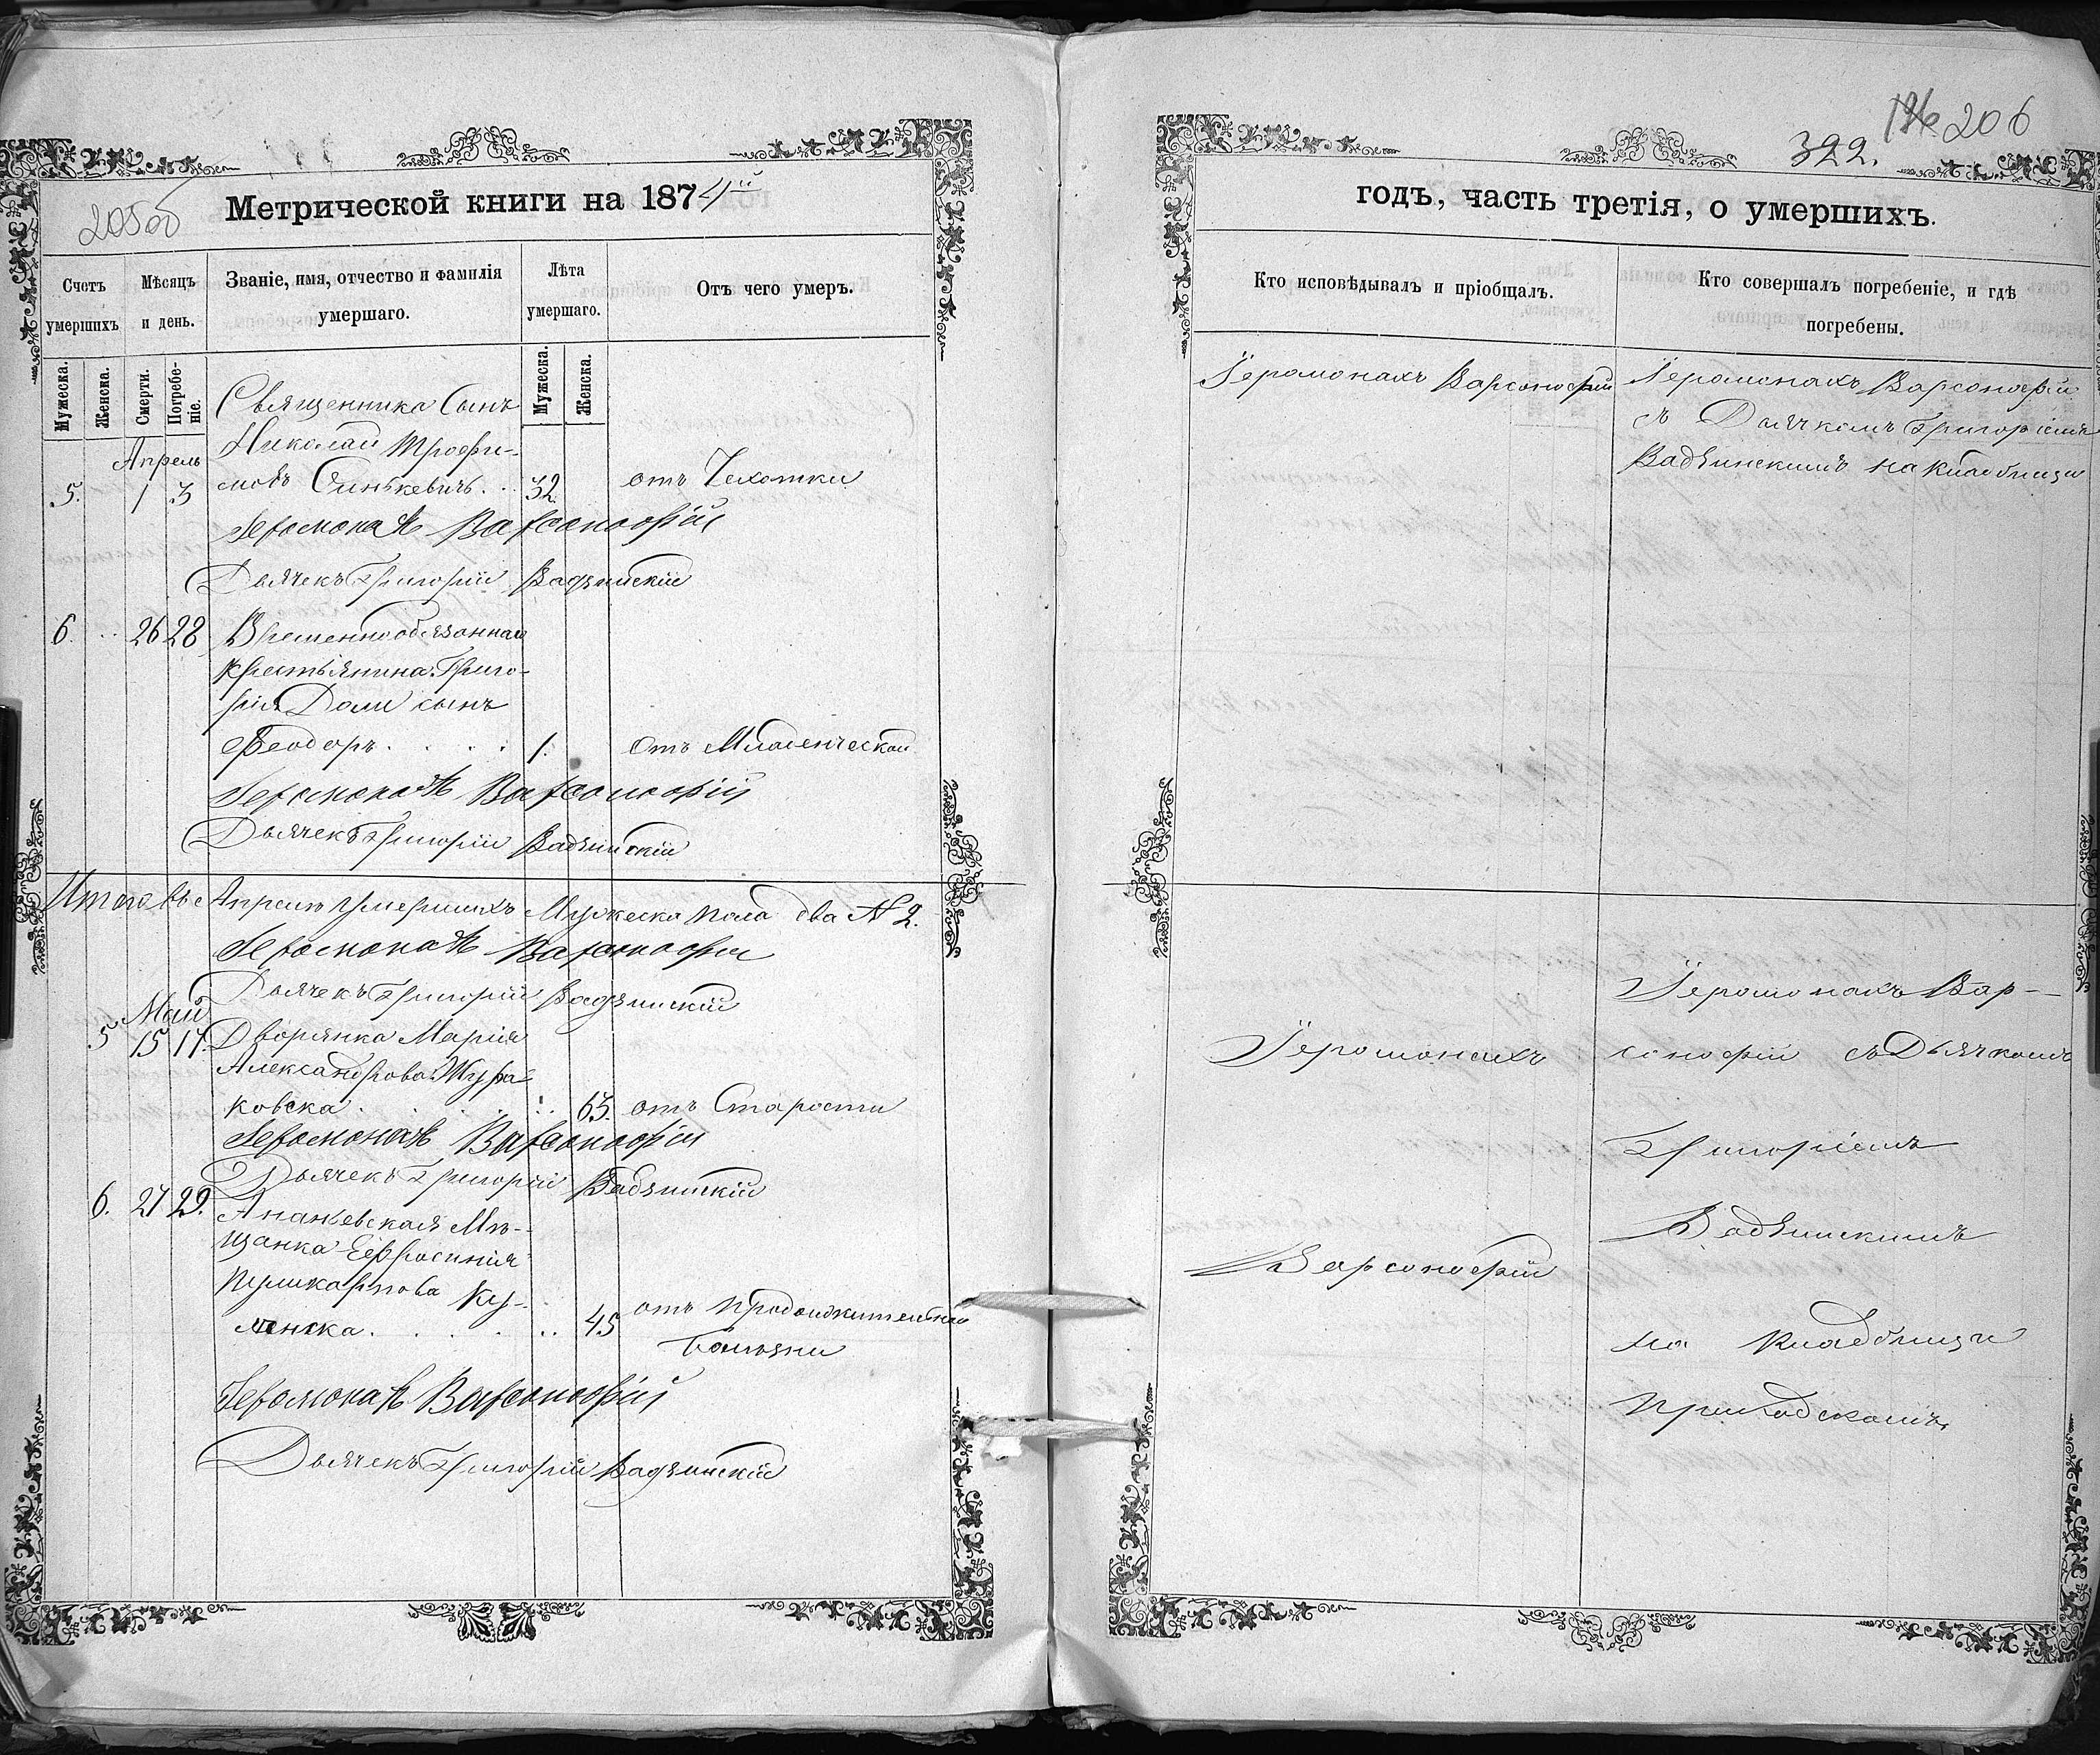 205об
Метрической книги на 1874й
Счетъ умершихъ
Мѣсяцъ и день.
Званіе, имя, отчество и фамилія умершаго.
Лѣта умершаго.
Отъ чего умеръ.
Мужеска.
Женска.
Смерти.
Погребеніе.
Мужеска.
Женска.
Священника Сынъ
Апрель
Николай Трофи-
5. 1 3 мовъ Синькевичъ. . . 32. отъ Чехотки
Іеромонахъ Варсонофій
Дьячекъ Григорій Вадзинскій
6. .. 26 28 Временнообязаннаго
Крестьянина Григо-
рія Доли сынъ
Феодоръ. . . . . 1. отъ Младенческой
Іеромонахъ Варсонофій
Дьячекъ Григорій Вадзинскій
Итого въ Апреле умершихъ Мужеска пола два № 2.
Іеромонахъ Варсонофій
Дьячекъ Григорій Вадзинскій
Май
5 15 17. Дворянка Марія
Александрова Жура-
ковска . . . . . : 65. отъ Старости
Іеромонахъ Варсонофій
Дьячекъ Григорій Вадзинскій
6. 27 29. Ананьевская Мѣ-
щанка Евфросинія
Ку-
. . . . .. 45 отъ продолжительной
болѣзни
Іеромонахъ Варсонофій
Дьячекъ Григорій Вадзинскій
206
322.
годъ, часть третія, о умершихъ.
Кто исповѣдывалъ и пріобщалъ.
Кто совершалъ погребеніе, и гдѣ погребены.
Іеромонахъ Варсонофій
Іеромонахъ Варсонофій
съ Дьячкомъ Григоріемъ
Вадзинскимъ на кладбищи
Іеромонахъ
Варсонофій
Іеромонахъ Вар-
сонофій съ Дьячкомъ
Григоріемъ
Вадзинскимъ
на кладбищи
приходскомъ.